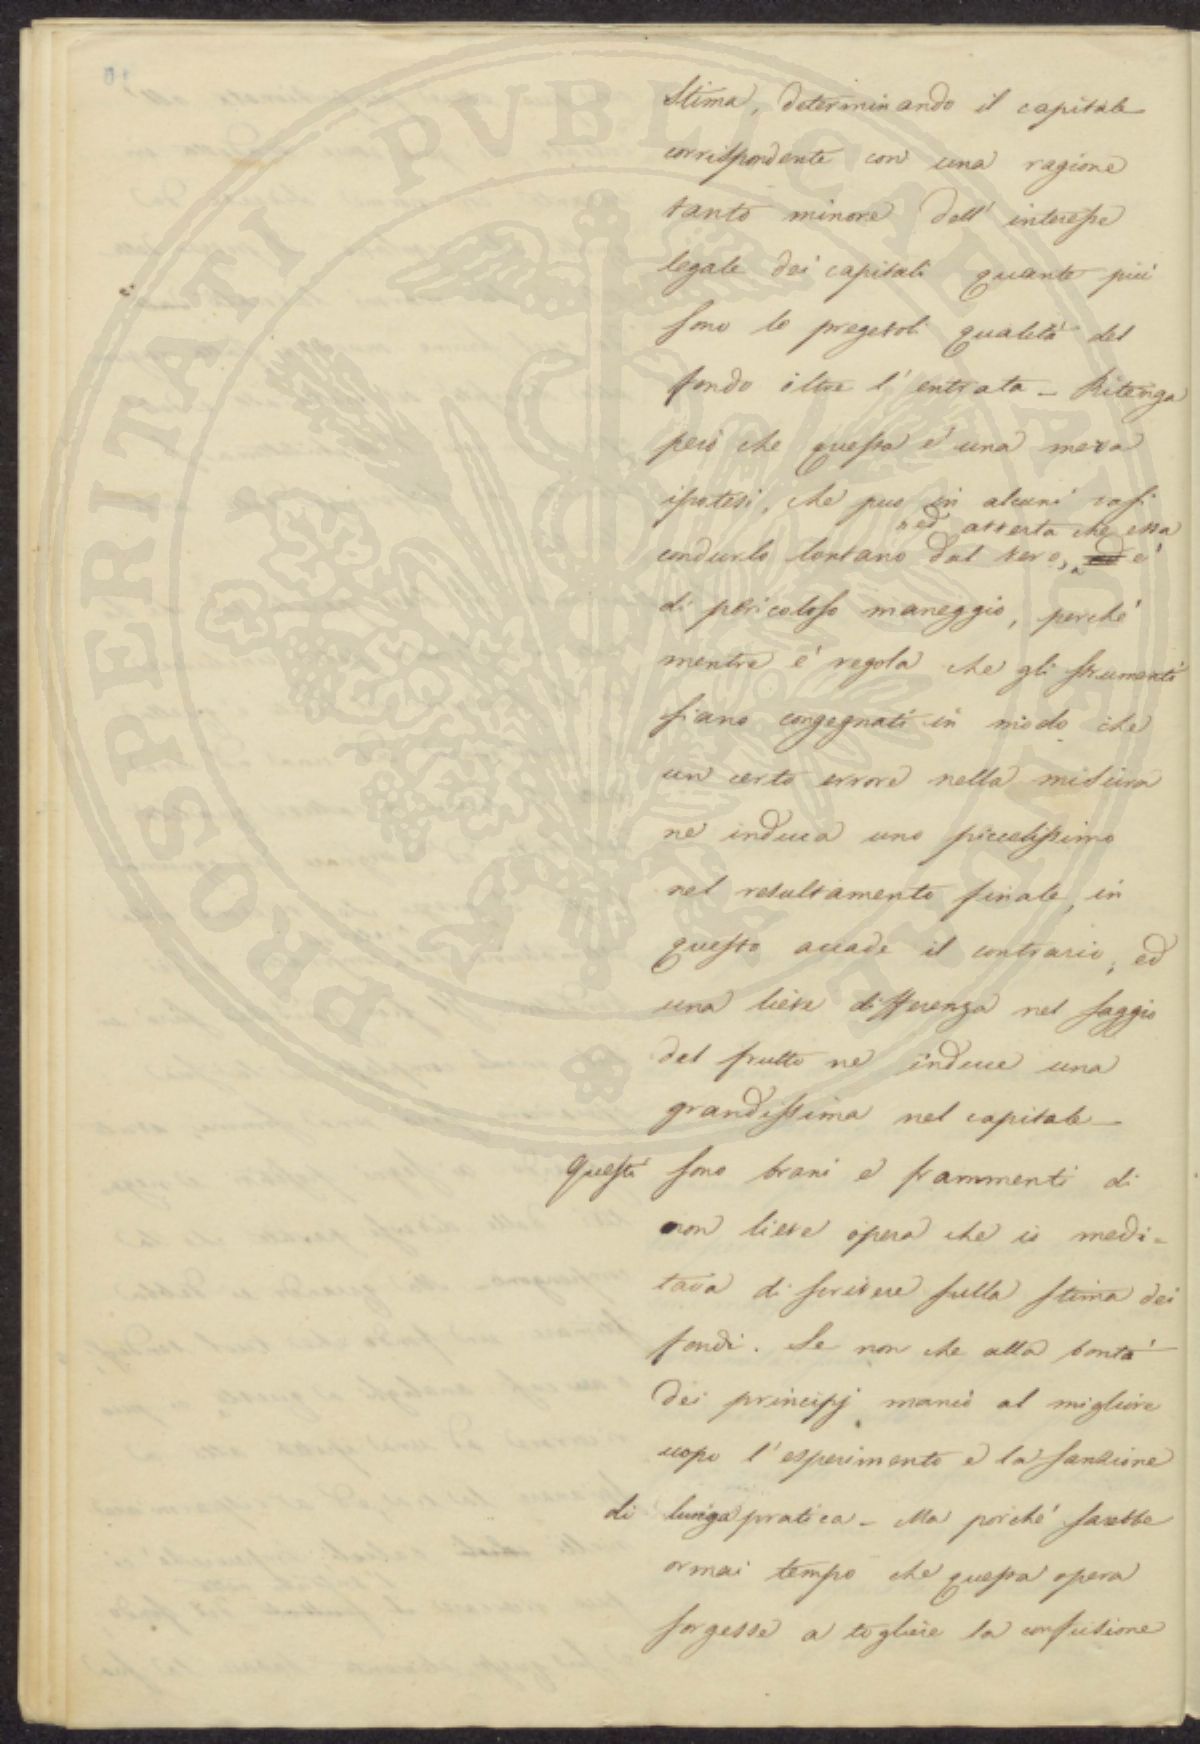 PROSPERITATI PVBLICAE AVGENDAE
Stima, determinando il capitale
corrispondente con una ragione
tanto minore dell' interesse
legale dei capitali quante più
sono le pregevoli qualità del
fondo oltre l' entrata - Ritenga
però che questa è una mera
ipotesi, che può in alcuni casi
condurlo lontano dal vero, ed avverta che essa è
di pericoloso maneggio, perchè
mentre è regola che gli strumenti
siano congegnati in modo che
un certo errore nella misura
ne induca uno piccolissimo
nel resultamento finale, in
questo accade il contrario, ed
una lieve differenza nel saggio
del frutto ne induce una
grandissima nel capitale -
Questi sono brani e frammenti di
non lieve opera che io medi-
tava di scrivere sulla stima dei
fondi. Se non che alla bontà
dei principj mancò al migliore
uopo l' esperimento e la sanzione
di lunga pratica - Ma poichè sarebbe
ormai tempo che questa opera
sorgesse a togliere la confusione